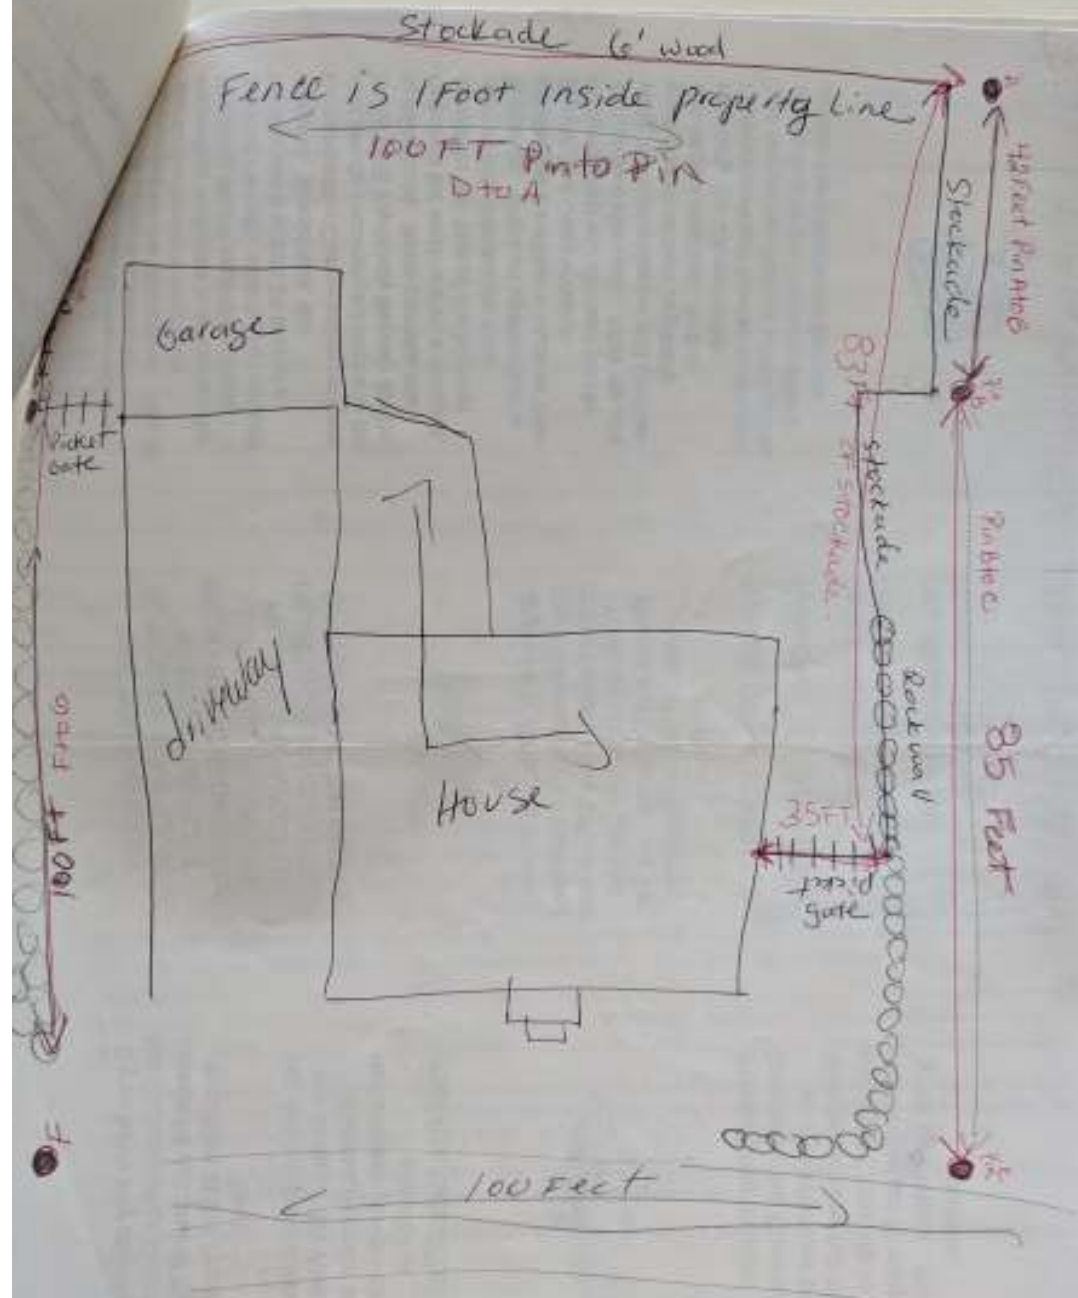 Stockade 6' wood
Fence is 1 Foot inside property Line
100 FT Pin to Pin
D to A
A
42 Feet Pin A to B
Stockade
Garage
Picket
Gate
83 F
of stockade
stockade
Pin
B
Pin B to C
Rock wall
85 Feet
driveway
House
35 FT
picket
gate
100 FT F to G
F
100 Feet